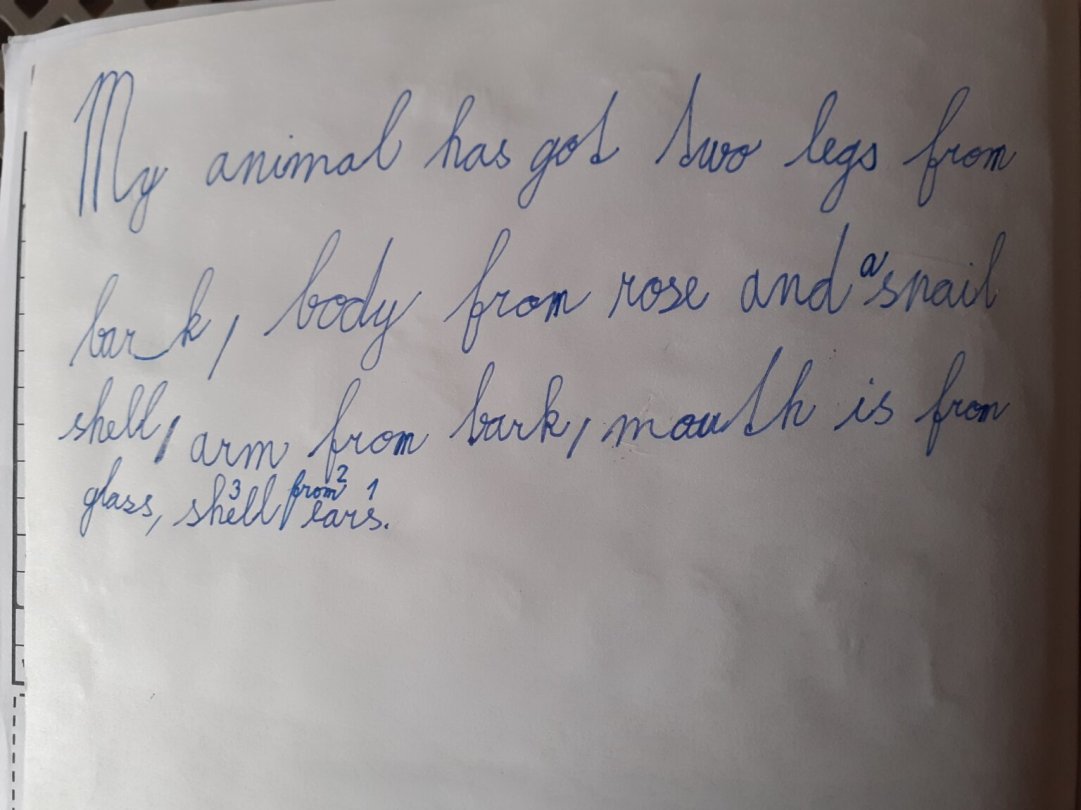 My animal has got two legs from
bark, body from rose and a snail
shell, arm from bark, mouth is from
glass, shell 3 from 2 ears. 1